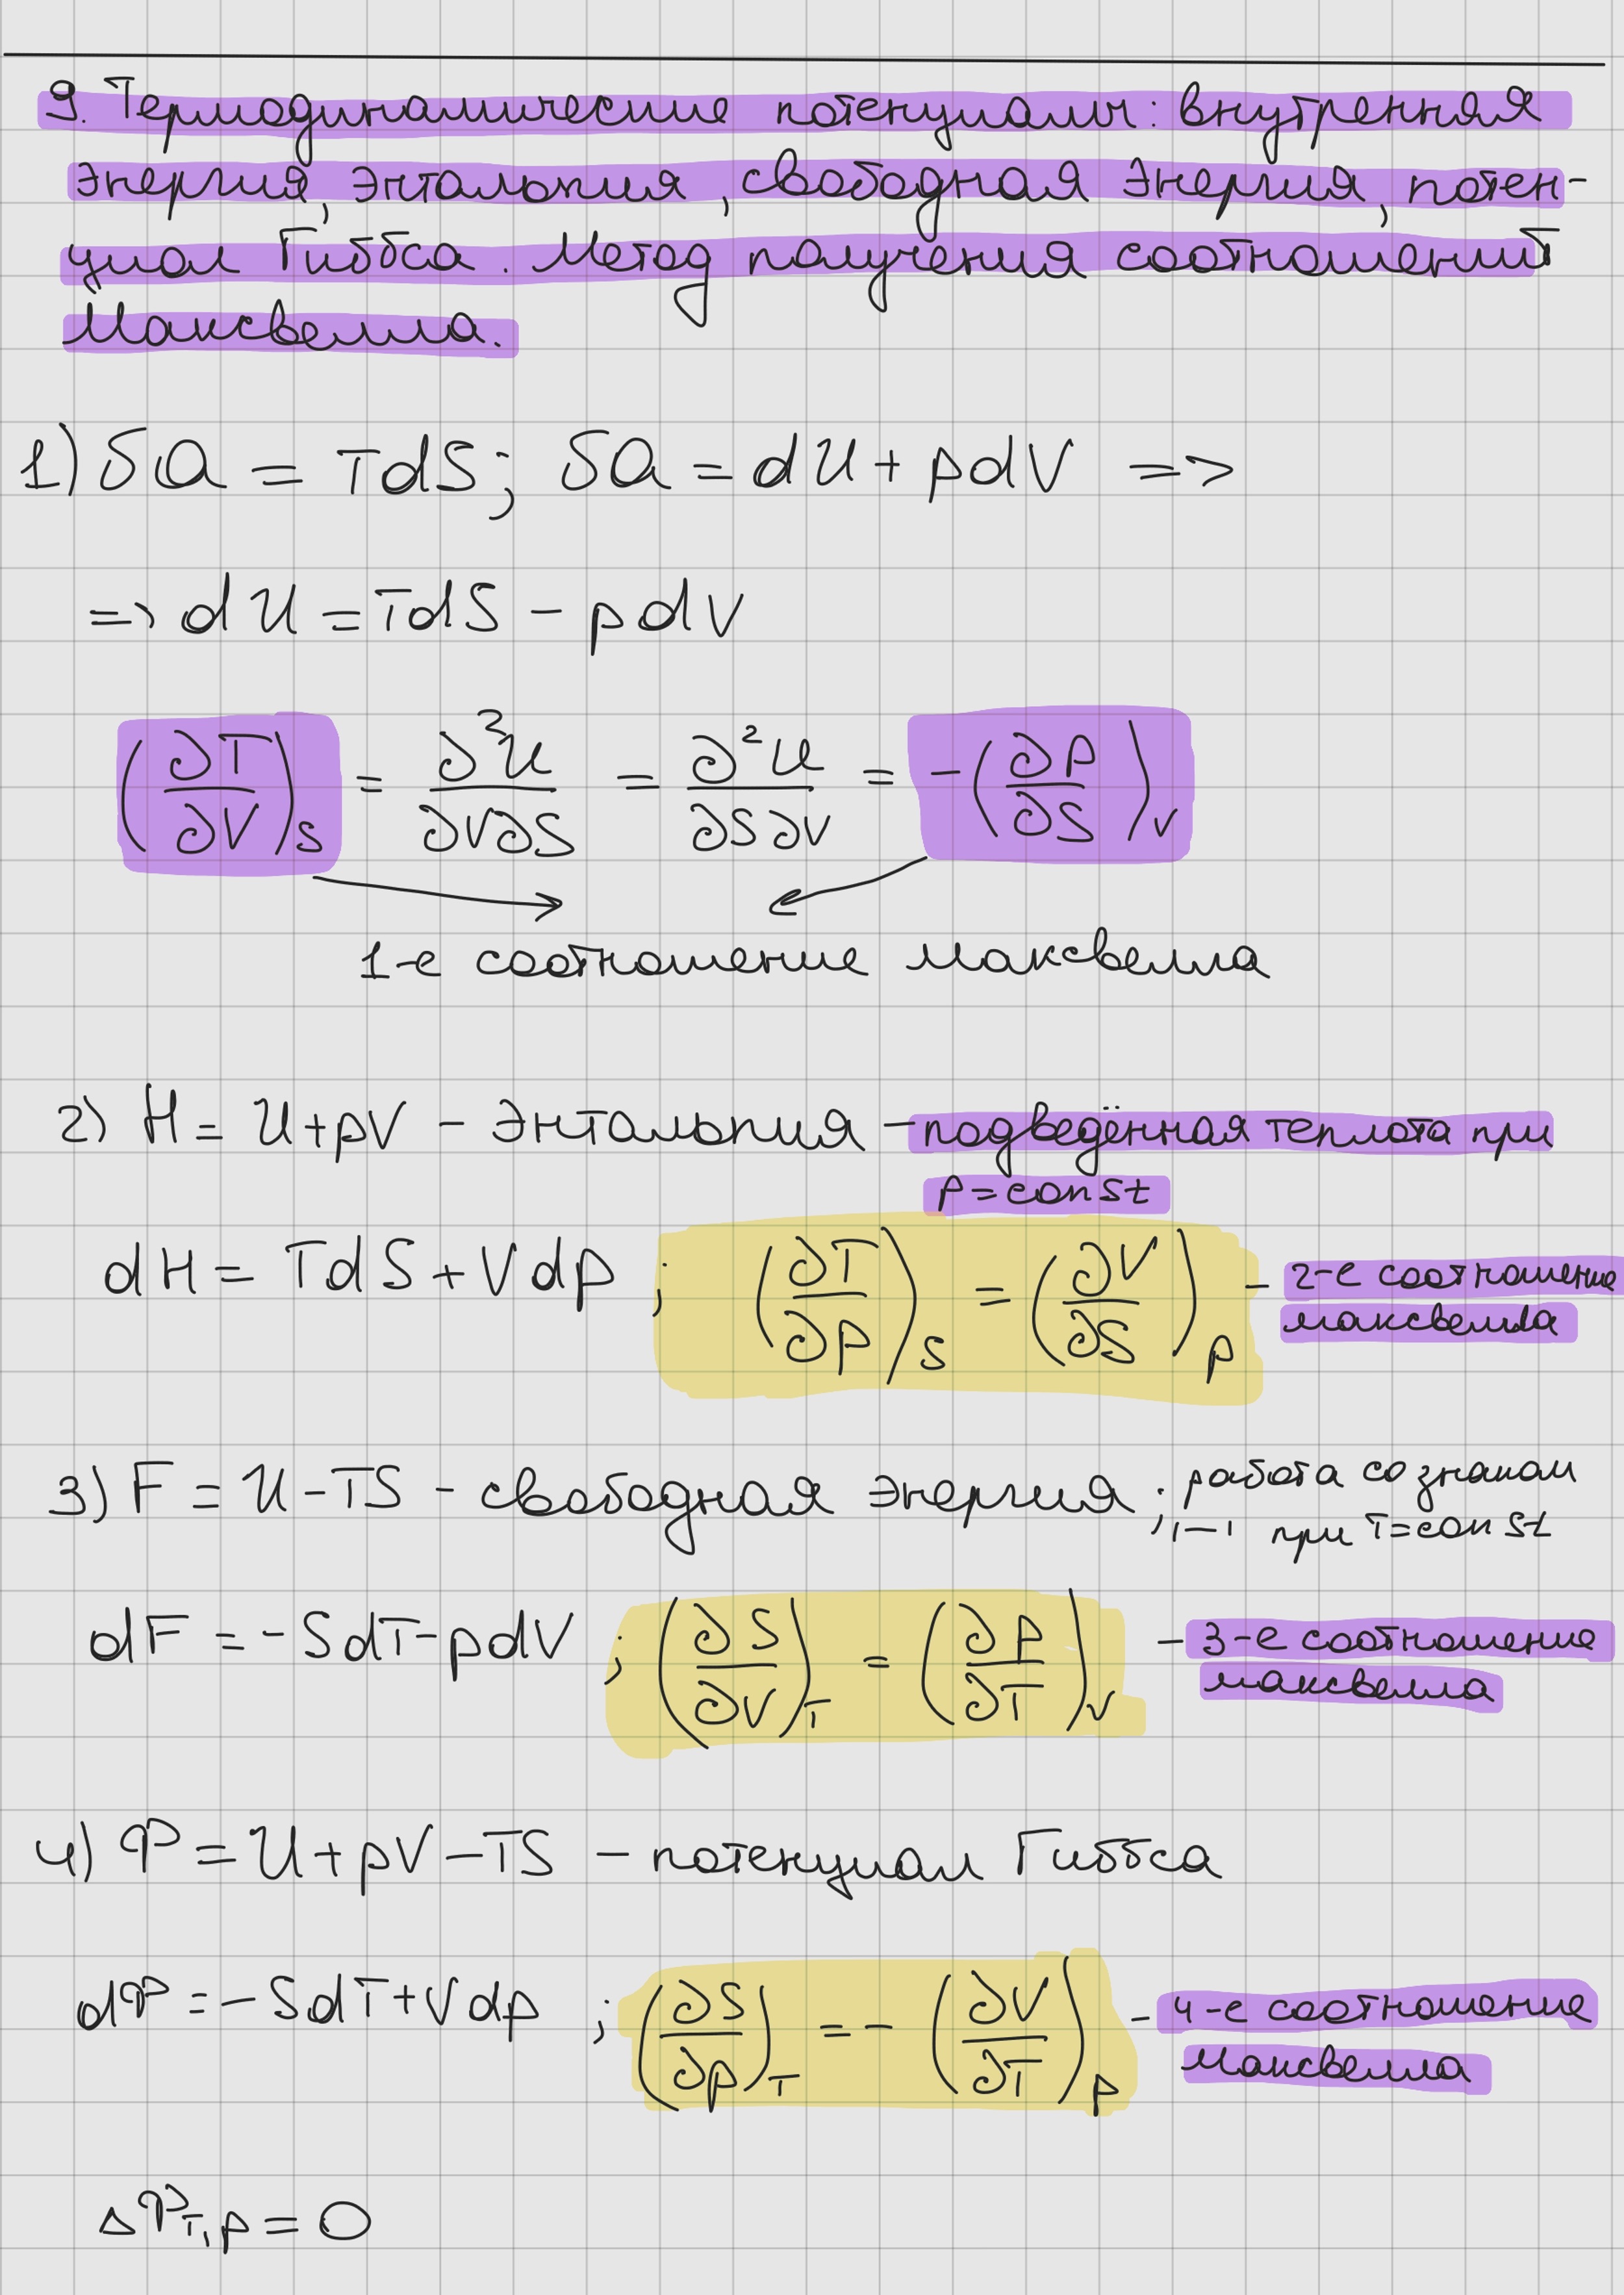 9. Термодинамические потенциалы: внутренняя
энергия, энтальпия, свободная энергия, потен-
циал Гиббса. Метод получения соотношений
Максвелла.
1) δQ = TdS; δQ = dU + pdV =>
=> dU = TdS - pdV
(∂T/∂V)_S = ∂²U/∂V∂S = ∂²U/∂S∂V = -(∂p/∂S)_V
1-е соотношение максвелла
2) H = U+pV - энтальпия - подведённая теплота при
p=const
dH = TdS + Vdp ; (∂T/∂p)_S = (∂V/∂S)_p - 2-е соотношение
максвелла
3) F = U-TS - свободная энергия ; работа со знаком
'-' при T=const
dF = -SdT-pdV ; (∂S/∂V)_T = (∂p/∂T)_V - 3-е соотношение
максвелла
4) Φ = U+pV-TS - потенциал Гиббса
dΦ = -SdT+Vdp ; (∂S/∂p)_T = -(∂V/∂T)_p - 4-е соотношение
Максвелла
ΔΦ_T,p = 0